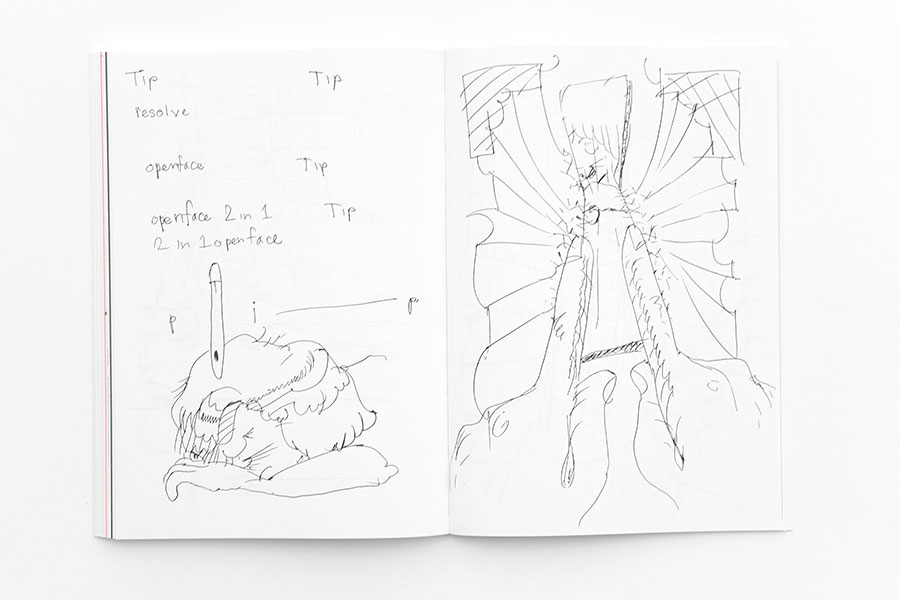 Tip Tip
resolve
openface Tip
openface 2 in 1 Tip
2 in 1 openface
p i p